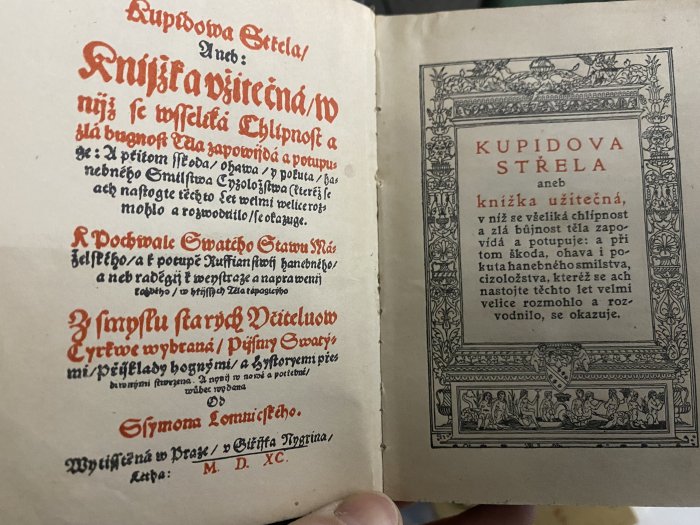 Kupidowa Střela/
Aneb:
Knijžka vžitečná/w
nijž se wsseliká Chlipnost a
zlá bugnost Těla zapowijdá a potupu-
ge: A přitom sskoda/ohawa/y pokuta/ha-
nebného Smilstwa Cyzoložstwa/kteréž se
ach nastogte těchto Let welmi welice roz-
mohlo a rozwodnilo/se okazuge.
K Pochwale Swatého Stawu Má-
želského/a k potupě Ruffianstwij hanebného/
a neb raděgij k weystraze a naprawenij
každého/w hřijssých Těla tápagicyho
Z smyslu starých Včiteluow
Cyrkwe wybraná/Pijsmy Swatý-
mi/Přijklady hognými/a Hystoryemi pře-
dewnými stwrzena. A nynij w nowě a potřebně/
wůbec wydana
Od
Ssymona Lomnického.
Wytisstěná w Praze/v Giřijka Nygrina,
Letha: M. D. XC.
KUPIDOVA
STŘELA
aneb
knížka užitečná,
v níž se všeliká chlípnost
a zlá bůjnost těla zapo-
vídá a potupuje: a při
tom škoda, ohava i po-
kuta hanebného smilstva,
cizoložstva, kteréž se ach
nastojte těchto let velmi
velice rozmohlo a roz-
vodnilo, se okazuje.